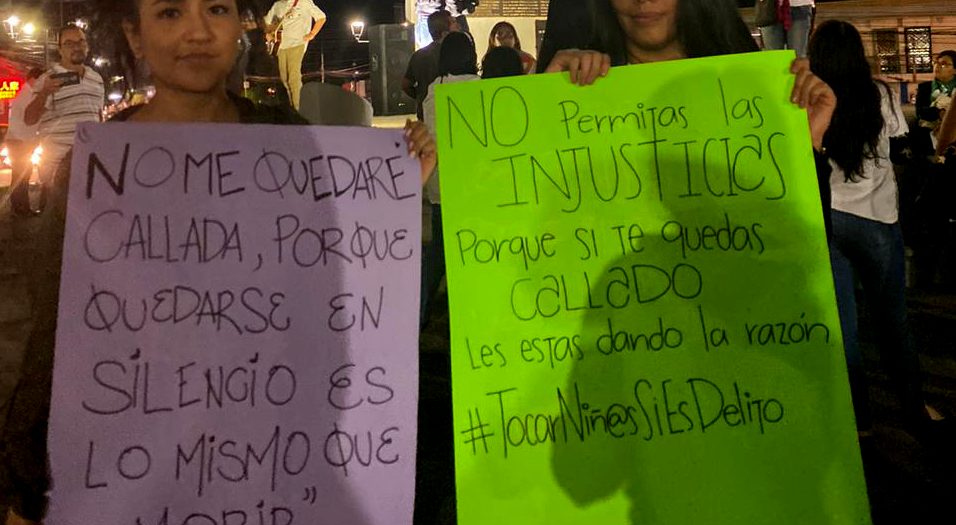 NO ME QUEDARÉ
CALLADA, PORQUE
QUEDARSE EN
SILENCIO ES
LO MISMO QUE
MORIR"
NO Permitas las
INJUSTICIAS
Porque si te quedas
CALLADO
Les estas dando la razón
#TocarNiñ@sSiEsDelito